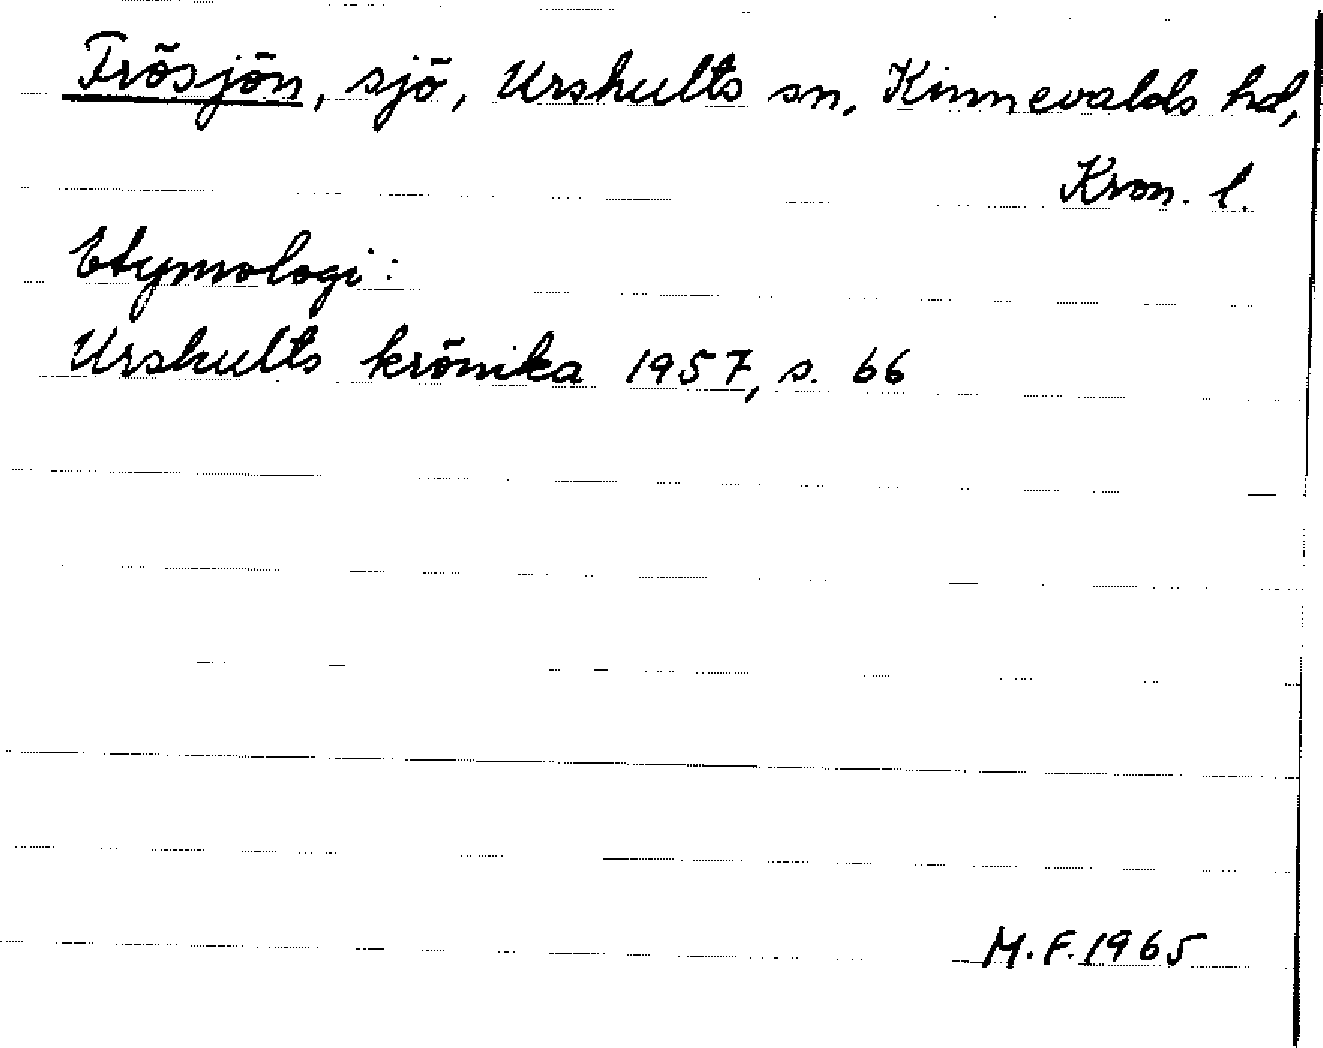 Trösjön, sjö, Urshults sn, Kinnevalds hd,
Kron. l.
Etymologi:
Urshults krönika 1957, s. 66
M.F. 1965